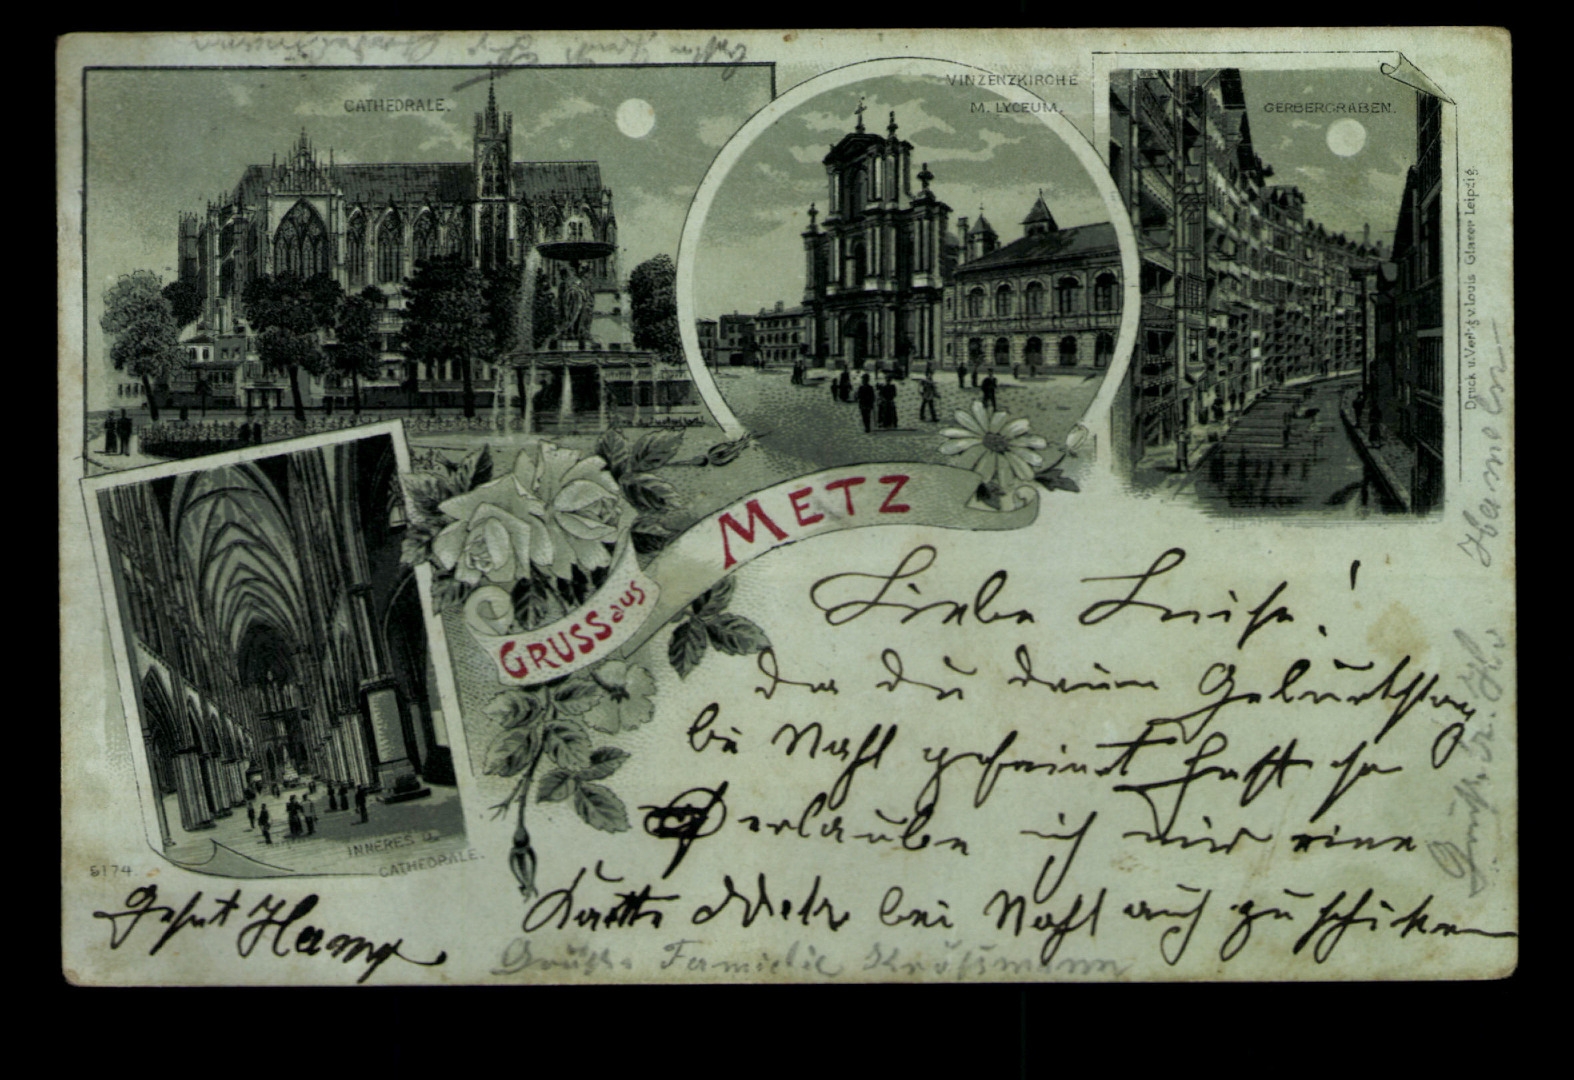 CATHEDRALE.
VINZENZKIRCHE
M. LYCEUM.
GERBERGRABEN.
Druck u. Verlg v. Louis Glaser Leipzig.
METZ
GRUSS aus
INNERES d.
CATHEDRALE.
5174.
Liebe Luise!
Da du deinen Geburtstag
bei Nacht gefeiert hast so
erlaube ich mir eine
Karte Metz bei Nacht auch zu schicken
Gruß Hamp.
Grüße Familie